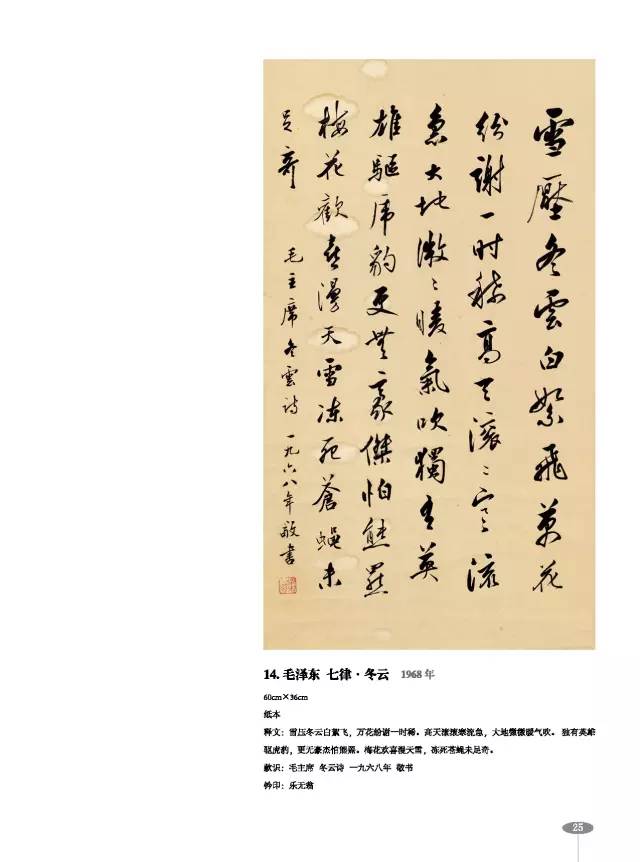 雪壓冬雲白絮飛萬花
紛謝一时稀高天滚々寒流
急大地微々暖氣吹獨有英
雄驅虎豹更無豪傑怕熊羆
梅花歡喜漫天雪冻死蒼蝇未
足奇
毛主席冬雲诗 一九六八年敬書
14. 毛泽东 七律·冬云 1968 年
60cm×36cm
纸本
释文：雪压冬云白絮飞，万花纷谢一时稀。高天滚滚寒流急，大地微微暖气吹。 独有英雄
驱虎豹，更无豪杰怕熊罴。梅花欢喜漫天雪，冻死苍蝇未足奇。
款识：毛主席 冬云诗 一九六八年 敬书
钤印：乐无
25